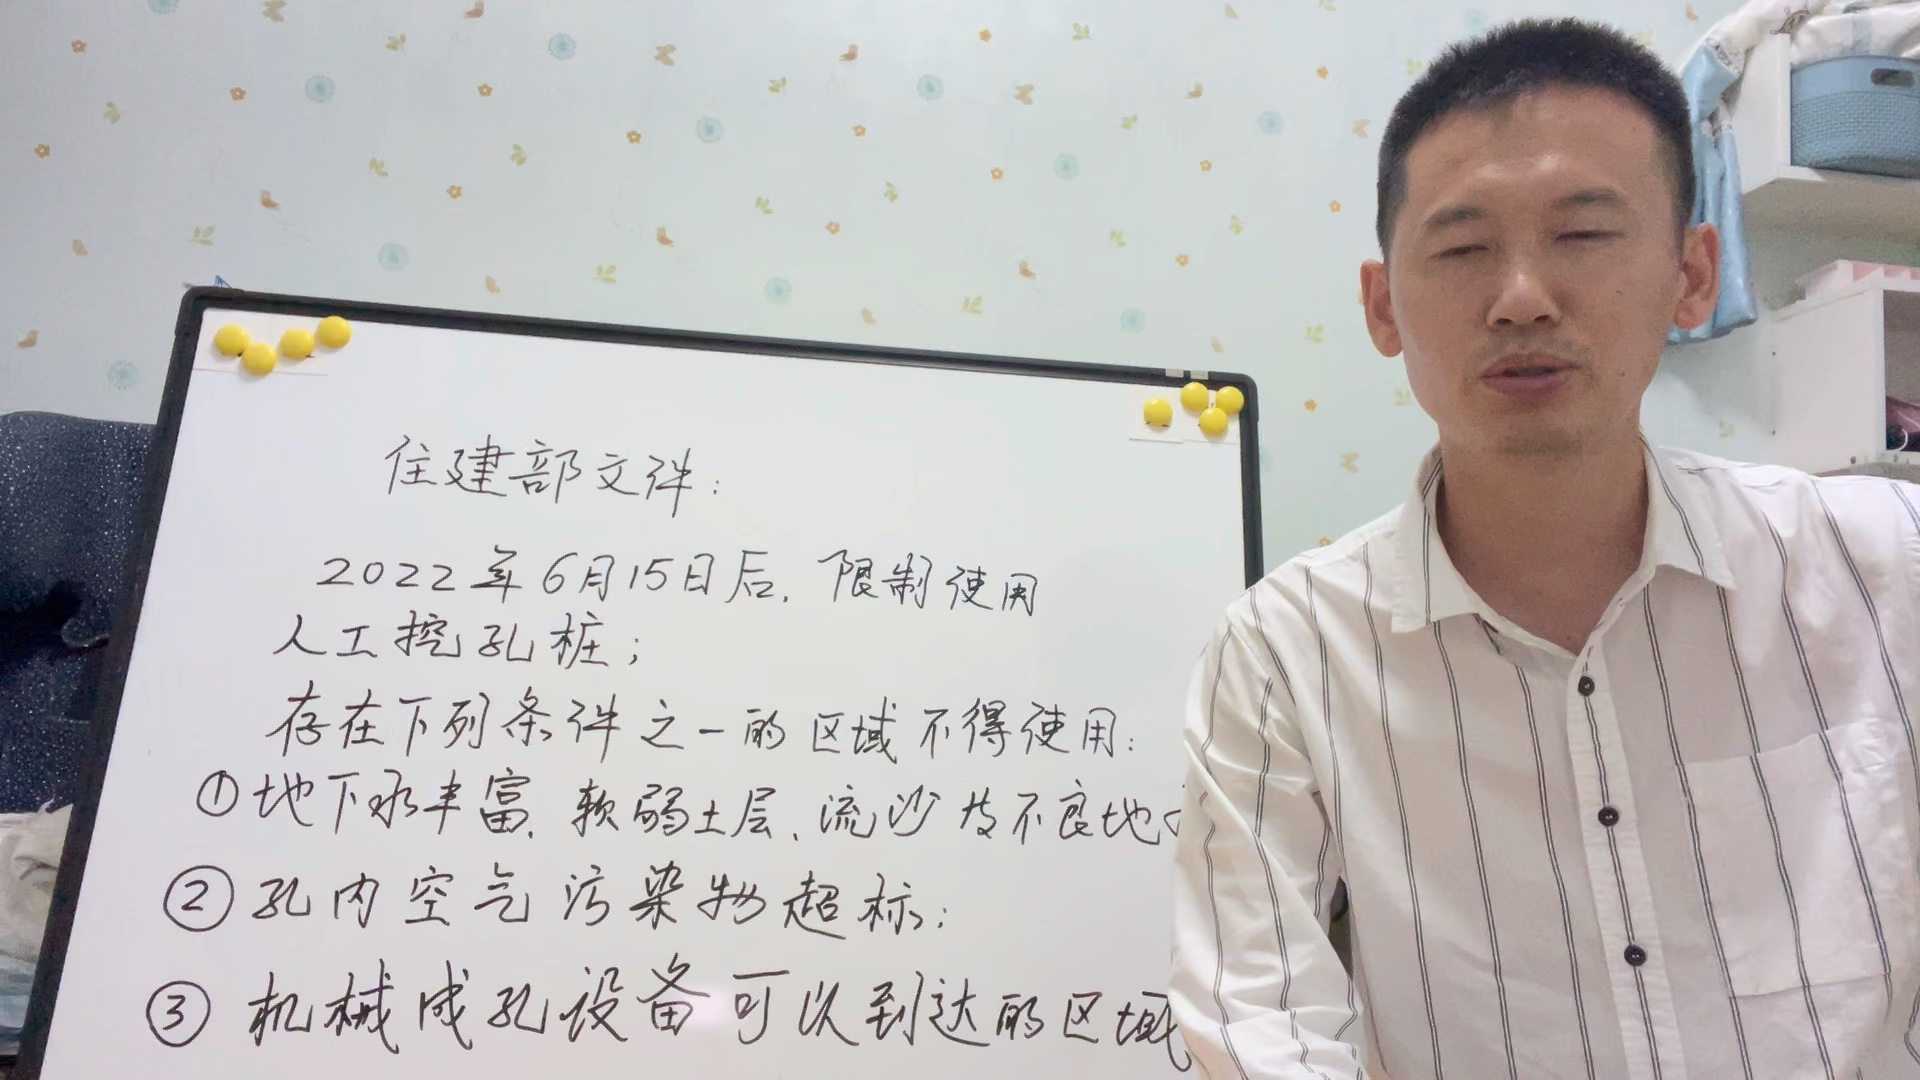 住建部文件：
2022年6月15日后，限制使用
人工挖孔桩；
存在下列条件之一的区域不得使用：
①地下水丰富、软弱土层、流沙及不良地
②孔内空气污染物超标；
③机械成孔设备可以到达的区域